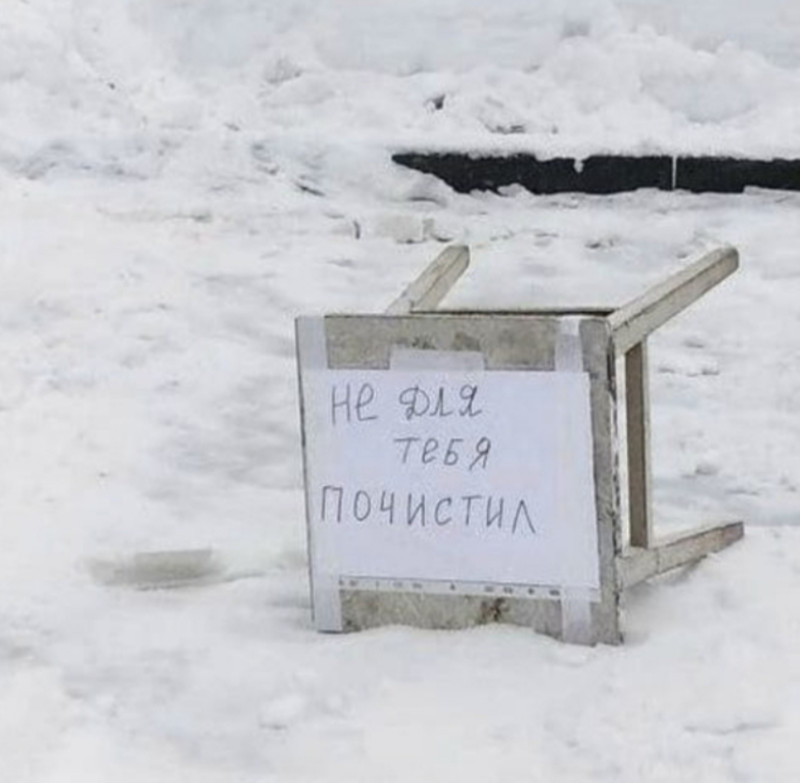 НЕ ДЛЯ
ТЕБЯ
ПОЧИСТИЛ